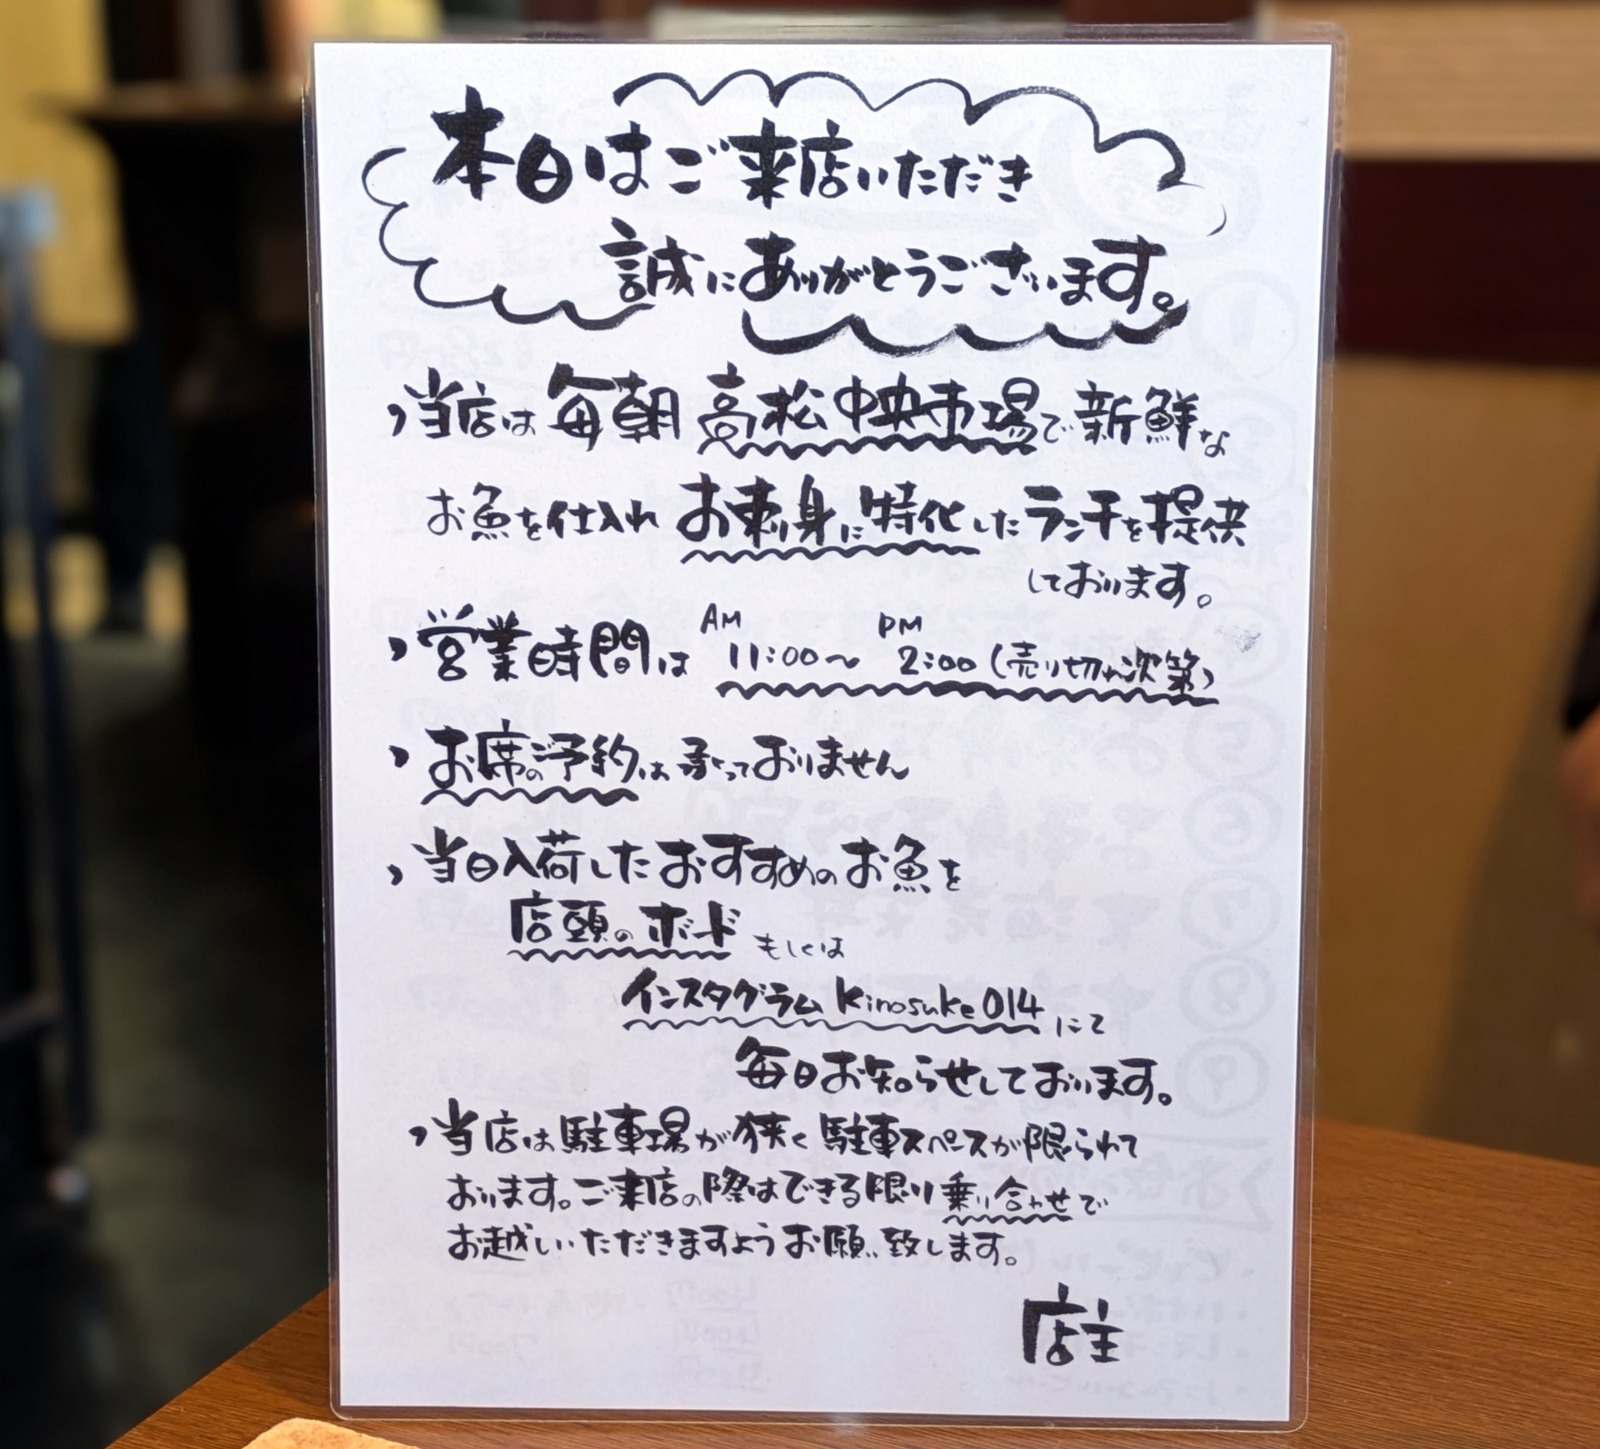 本日はご来店いただき
誠にありがとうございます。
、当店は毎朝高松中央市場で新鮮な
お魚を仕入れお刺身に特化したランチを提供
しております。
AM PM
、営業時間は 11:00〜 2:00(売り切れ次第)
、お席のご予約は承っておりません
、当日入荷したおすすめのお魚を
店頭のボードもしくは
インスタグラムkinosuke014にて
毎日お知らせしております。
、当店は駐車場が狭く駐車スペースが限られて
おります。ご来店の際はできる限り乗り合わせで
お越しいただきますようお願い致します。
店主